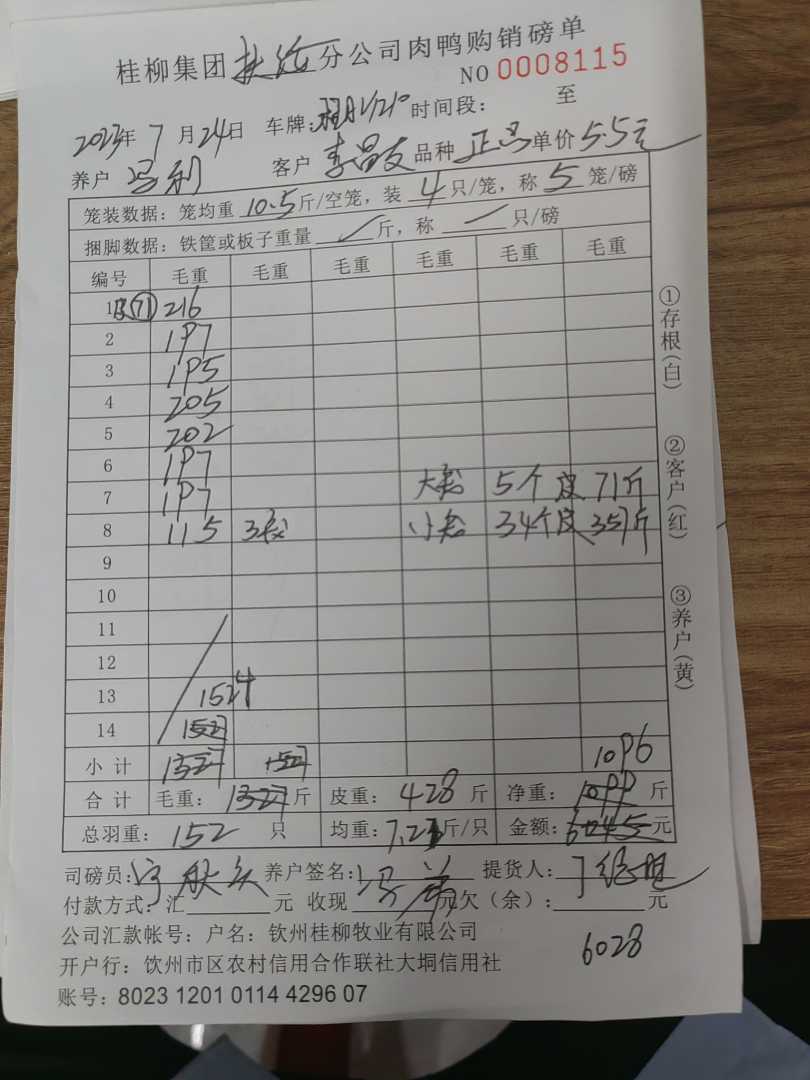 桂柳集团 分公司肉鸭购销磅单
NO 0008115
2023年 7 月 24日 车牌: 时间段: 至
养户 冯利 客户 李昌友 品种 正品 单价 5.5元
笼装数据：笼均重 10.5 斤/空笼，装 4 只/笼，称 5 笼/磅
捆脚数据：铁筐或板子重量 斤，称 只/磅
编号 毛重 毛重 毛重 毛重 毛重 毛重
1 皮(71) 216
2 197
3 195
4 205
5 202
6 197
7 197 大名 5个 皮 71斤
8 115 3 小名 34个 皮 357斤
9
10
11
12
13 1524
14 1527
小计 1327 +527 1096
合计 毛重： 1327 斤 皮重： 428 斤 净重： 1099 斤
总羽重： 152 只 均重: 7.21 斤/只 金额: 6045 元
司磅员: 养户签名: 冯 提货人:
付款方式：汇 元 收现 元 欠（余）: 元
公司汇款帐号：户名：钦州桂柳牧业有限公司
6028
开户行：饮州市区农村信用合作联社大垌信用社
账号：8023 1201 0114 4296 07
①存根(白)
②客户(红)
③养户(黄)